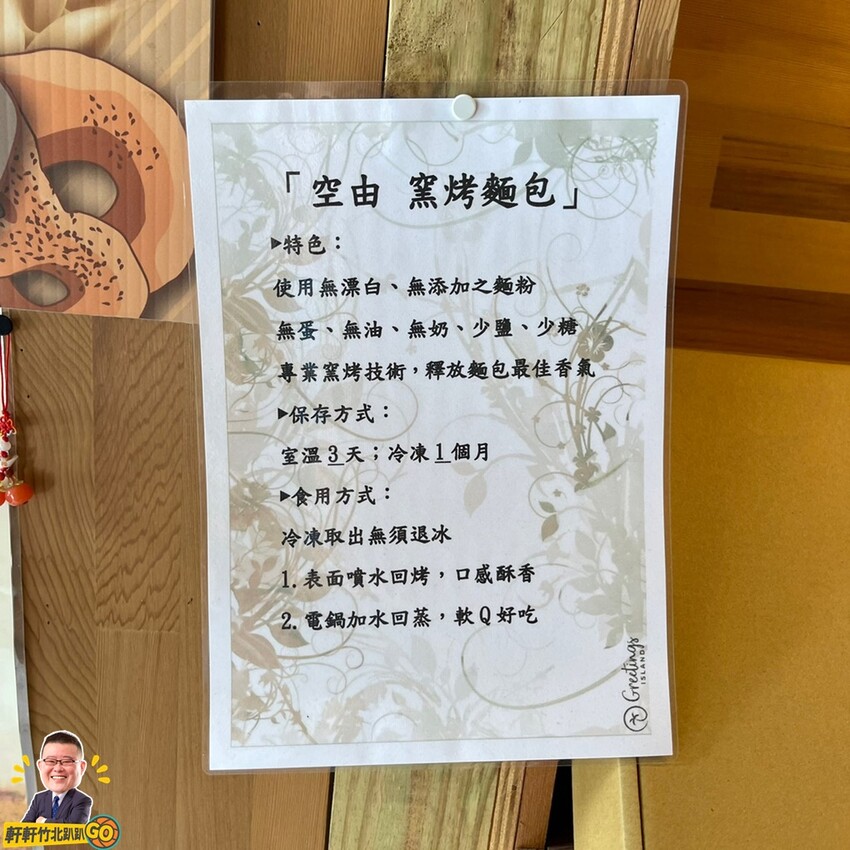 「空由 窯烤麵包」
▶特色：
使用無漂白、無添加之麵粉
無蛋、無油、無奶、少鹽、少糖
專業窯烤技術，釋放麵包最佳香氣
▶保存方式：
室溫3天；冷凍1個月
▶食用方式：
冷凍取出無須退冰
1.表面噴水回烤，口感酥香
2.電鍋加水回蒸，軟Q好吃
Greetings
ISLAND
軒軒竹北趴趴GO